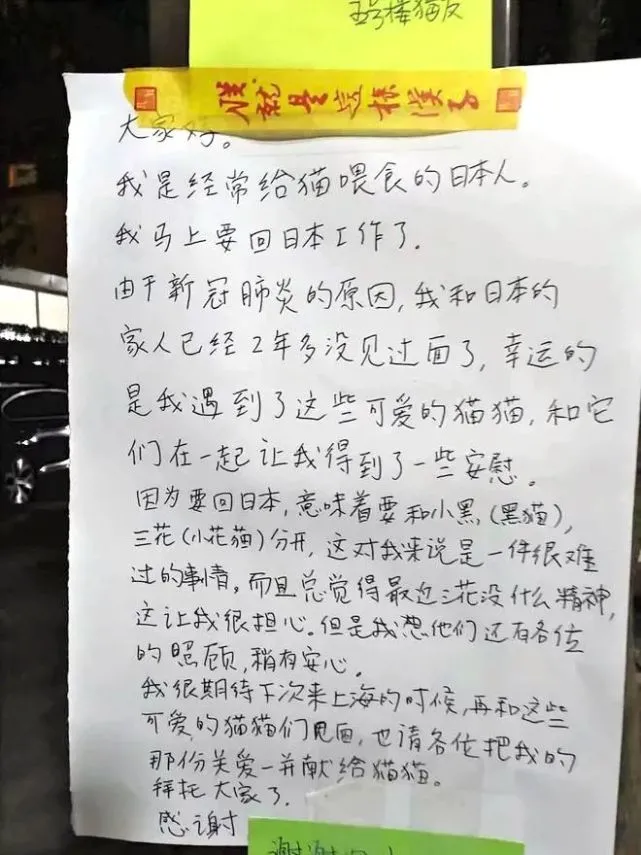 五号楼猫友
就是这样
大家好。
我是经常给猫喂食的日本人。
我马上要回日本工作了.
由于新冠肺炎的原因,我和日本的
家人已经2年多没见过面了,幸运的
是我遇到了这些可爱的猫猫,和它
们在一起让我得到了一些安慰。
因为要回日本,意味着要和小黑(黑猫),
三花(小花猫)分开,这对我来说是一件很难
过的事情,而且总觉得最近三花没什么精神,
这让我很担心。但是我想他们还有各位
的照顾,稍有安心。
我很期待下次来上海的时候,再和这些
可爱的猫猫们见面,也请各位把我的
那份关爱一并献给猫猫。
拜托大家了.
感谢
谢谢